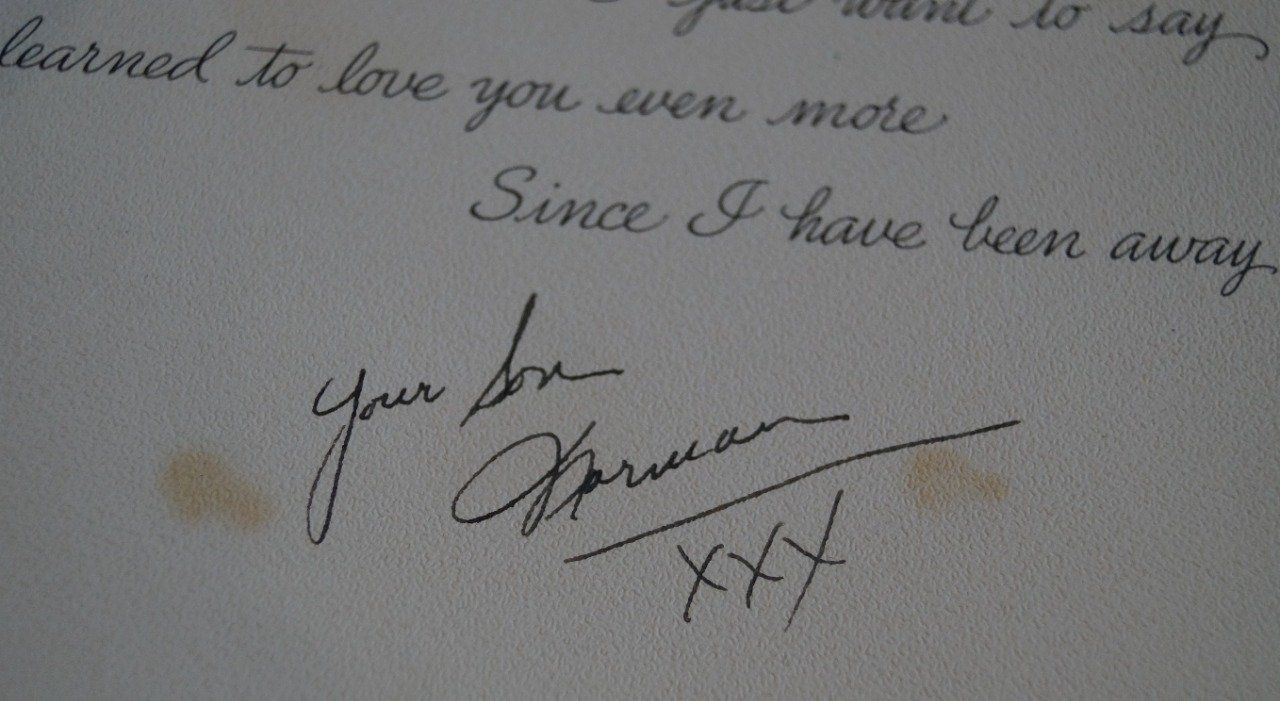 just want to say
learned to love you even more
Since I have been away
Your Son
Norman
XXX